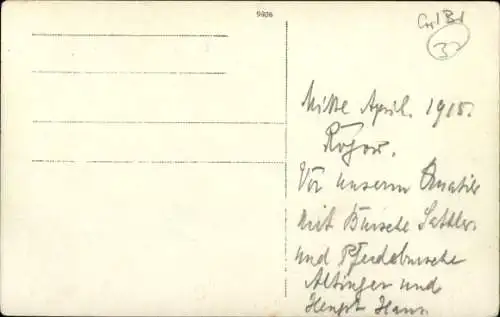 9406
Mitte April. 1915.
Rogow.
Vor unserm Quartier
mit Bursche Sattler
und Pferdebursche
Altinger und
Hengst Hans